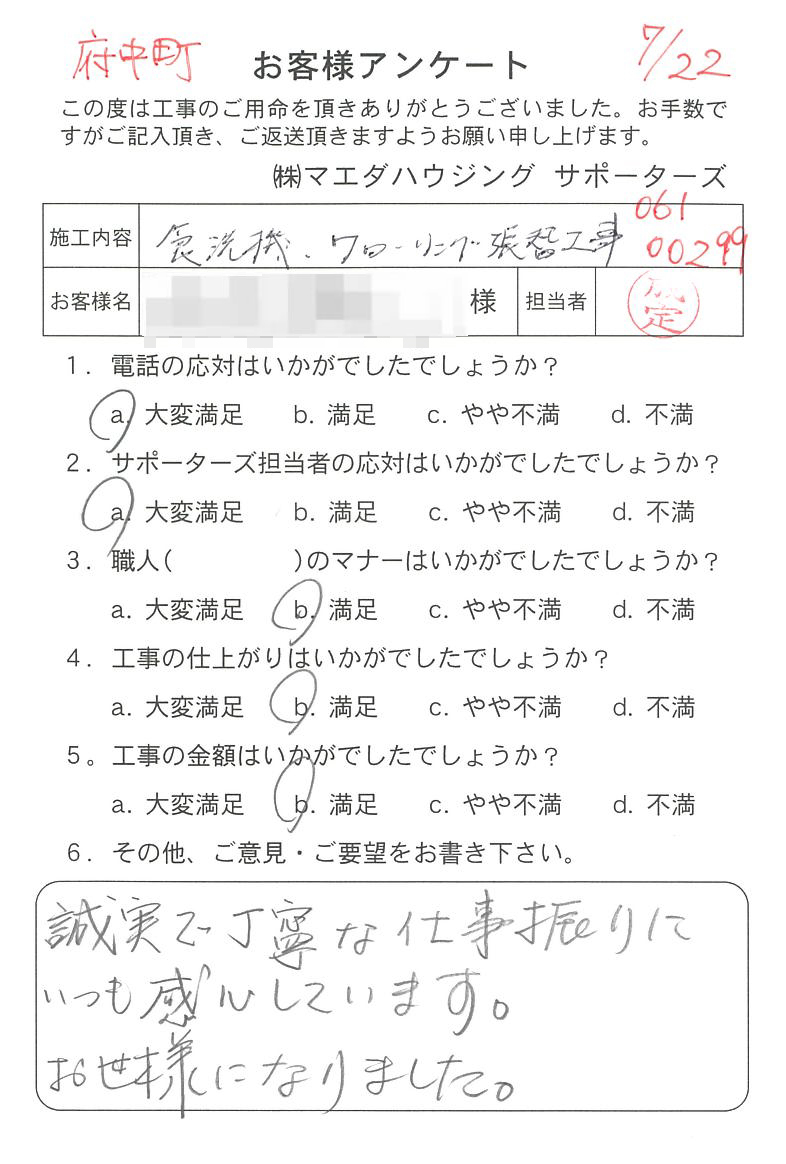 府中町 お客様アンケート 7/22
この度は工事のご用命を頂きありがとうございました。お手数で
すがご記入頂き、ご返送頂きますようお願い申し上げます。
㈱マエダハウジング サポーターズ
061
00299
施工内容 食洗機、フローリング張替工事
お客様名 様 担当者 定
1. 電話の応対はいかがでしたでしょうか?
a. 大変満足 b. 満足 c. やや不満 d. 不満
2. サポーターズ担当者の応対はいかがでしたでしょうか?
a. 大変満足 b. 満足 c. やや不満 d. 不満
3. 職人( )のマナーはいかがでしたでしょうか?
a. 大変満足 b. 満足 c. やや不満 d. 不満
4. 工事の仕上がりはいかがでしたでしょうか?
a. 大変満足 b. 満足 c. やや不満 d. 不満
5。工事の金額はいかがでしたでしょうか?
a. 大変満足 b. 満足 c. やや不満 d. 不満
6. その他、ご意見・ご要望をお書き下さい。
誠実で丁寧な仕事振りに
いつも感心しています。
お世様になりました。